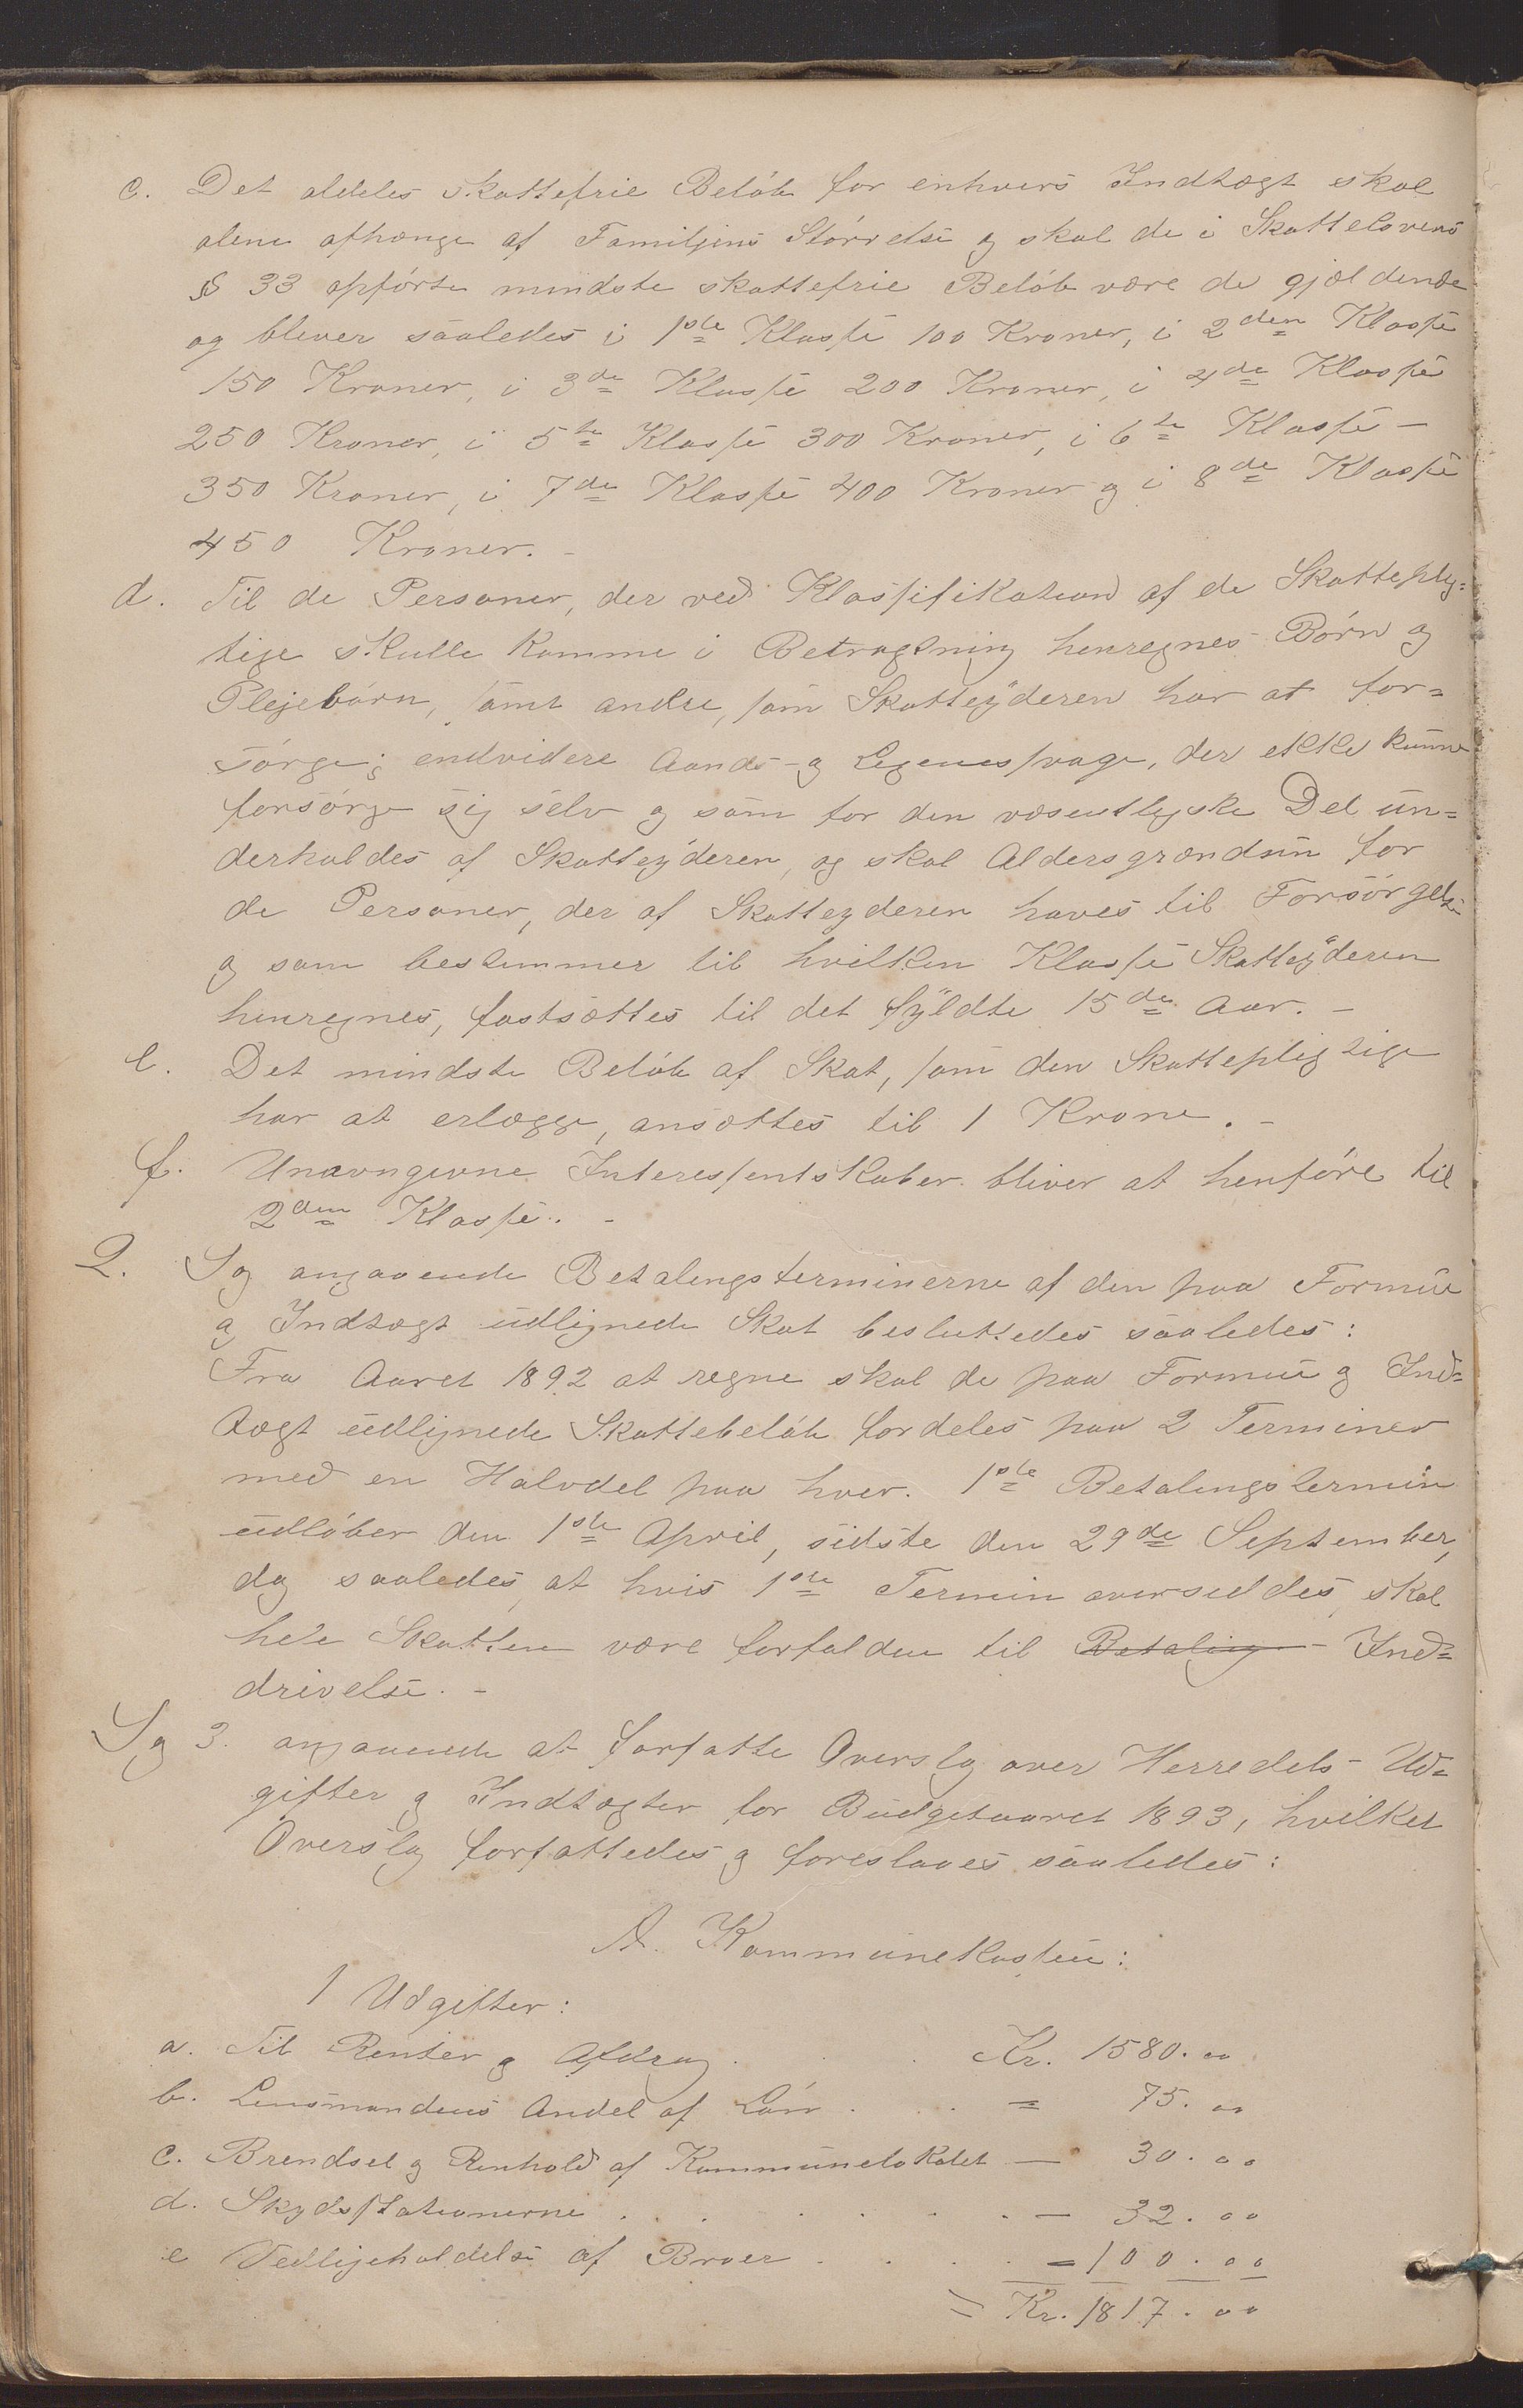 c. Det aldeles skattefrie Beløb for enhvers Indtægt skal
alene afhænge af Familjens Størrelse og skal de i Skattelovens
§ 33 opførte mindste skattefrie Beløb være de gjældende
og bliver saaledes i 1ste Klasse 100 Kroner, i 2den Klasse
150 Kroner, i 3de Klasse 200 Kroner, i 4de Klasse
250 Kroner, i 5te Klasse 300 Kroner, i 6te Klasse –
350 Kroner, i 7de Klasse 400 Kroner og i 8de Klasse
450 Kroner. –
d. Til de Personer, der ved Klassifikation af de Skatteply=
tige skulle komme i Betragtning henregnes Børn og
Plejebørn, samt andre, som Skatteyderen har at for=
sørge; endvidere Aands- og Legemssvage, der ekke kunne
forsørge sig selv og som for den væsentlyske Del un=
derholdes af Skatteyderen, og skal Aldersgrændsen for
de Personer, der af Skatteyderen haves til Forsørgelse
og som bestemmer til hvilken Klasse Skatteyderen
henregnes, fastsættes til det fyldte 15de Aar. –
e. Det mindste Beløb af Skat, som den Skattepligtige
har at erlægge, ansættes til 1 Krone. –
f. Unavngivne Interessentskaber bliver at henføre til
2den Klasse. –
2. Sag angaaende Betalingsterminerne af den paa Formue
og Indtægt udlignede Skat besluttedes saaledes:
Fra Aaret 1892 at regne skal de paa Formue og Ind=
tægt udlignede Skattebeløb fordeles paa 2 Terminer
med en Halvdel paa hver. 1ste Betalingstermin
udløber den 1ste April, sidste den 29de September,
dog saaledes, at hvis 1ste Termin oversiddes, skal
hele Skatten være forfalden til Betaling – Ind=
drivelse. –
Sag 3. angaaende at forfatte Overslag over Herredets Ud=
gifter og Indtægter for Budgetaaret 1893, hvilket
Overslag forfattedes og foresloges saaledes:
A. Kommunekassen:
1 Udgifter:
a. Til Renter og Afdrag . . Kr. 1580.00
b. Lensmandens Andel af Løn . . = 75.00
c. Brendsel og Renhold af Kommunelokalet — 30.00
d. Skydsstationerne . . . . . . — 32.00
e Vedligeholdelse af Broer . . . = 100.00
= Kr. 1817.00